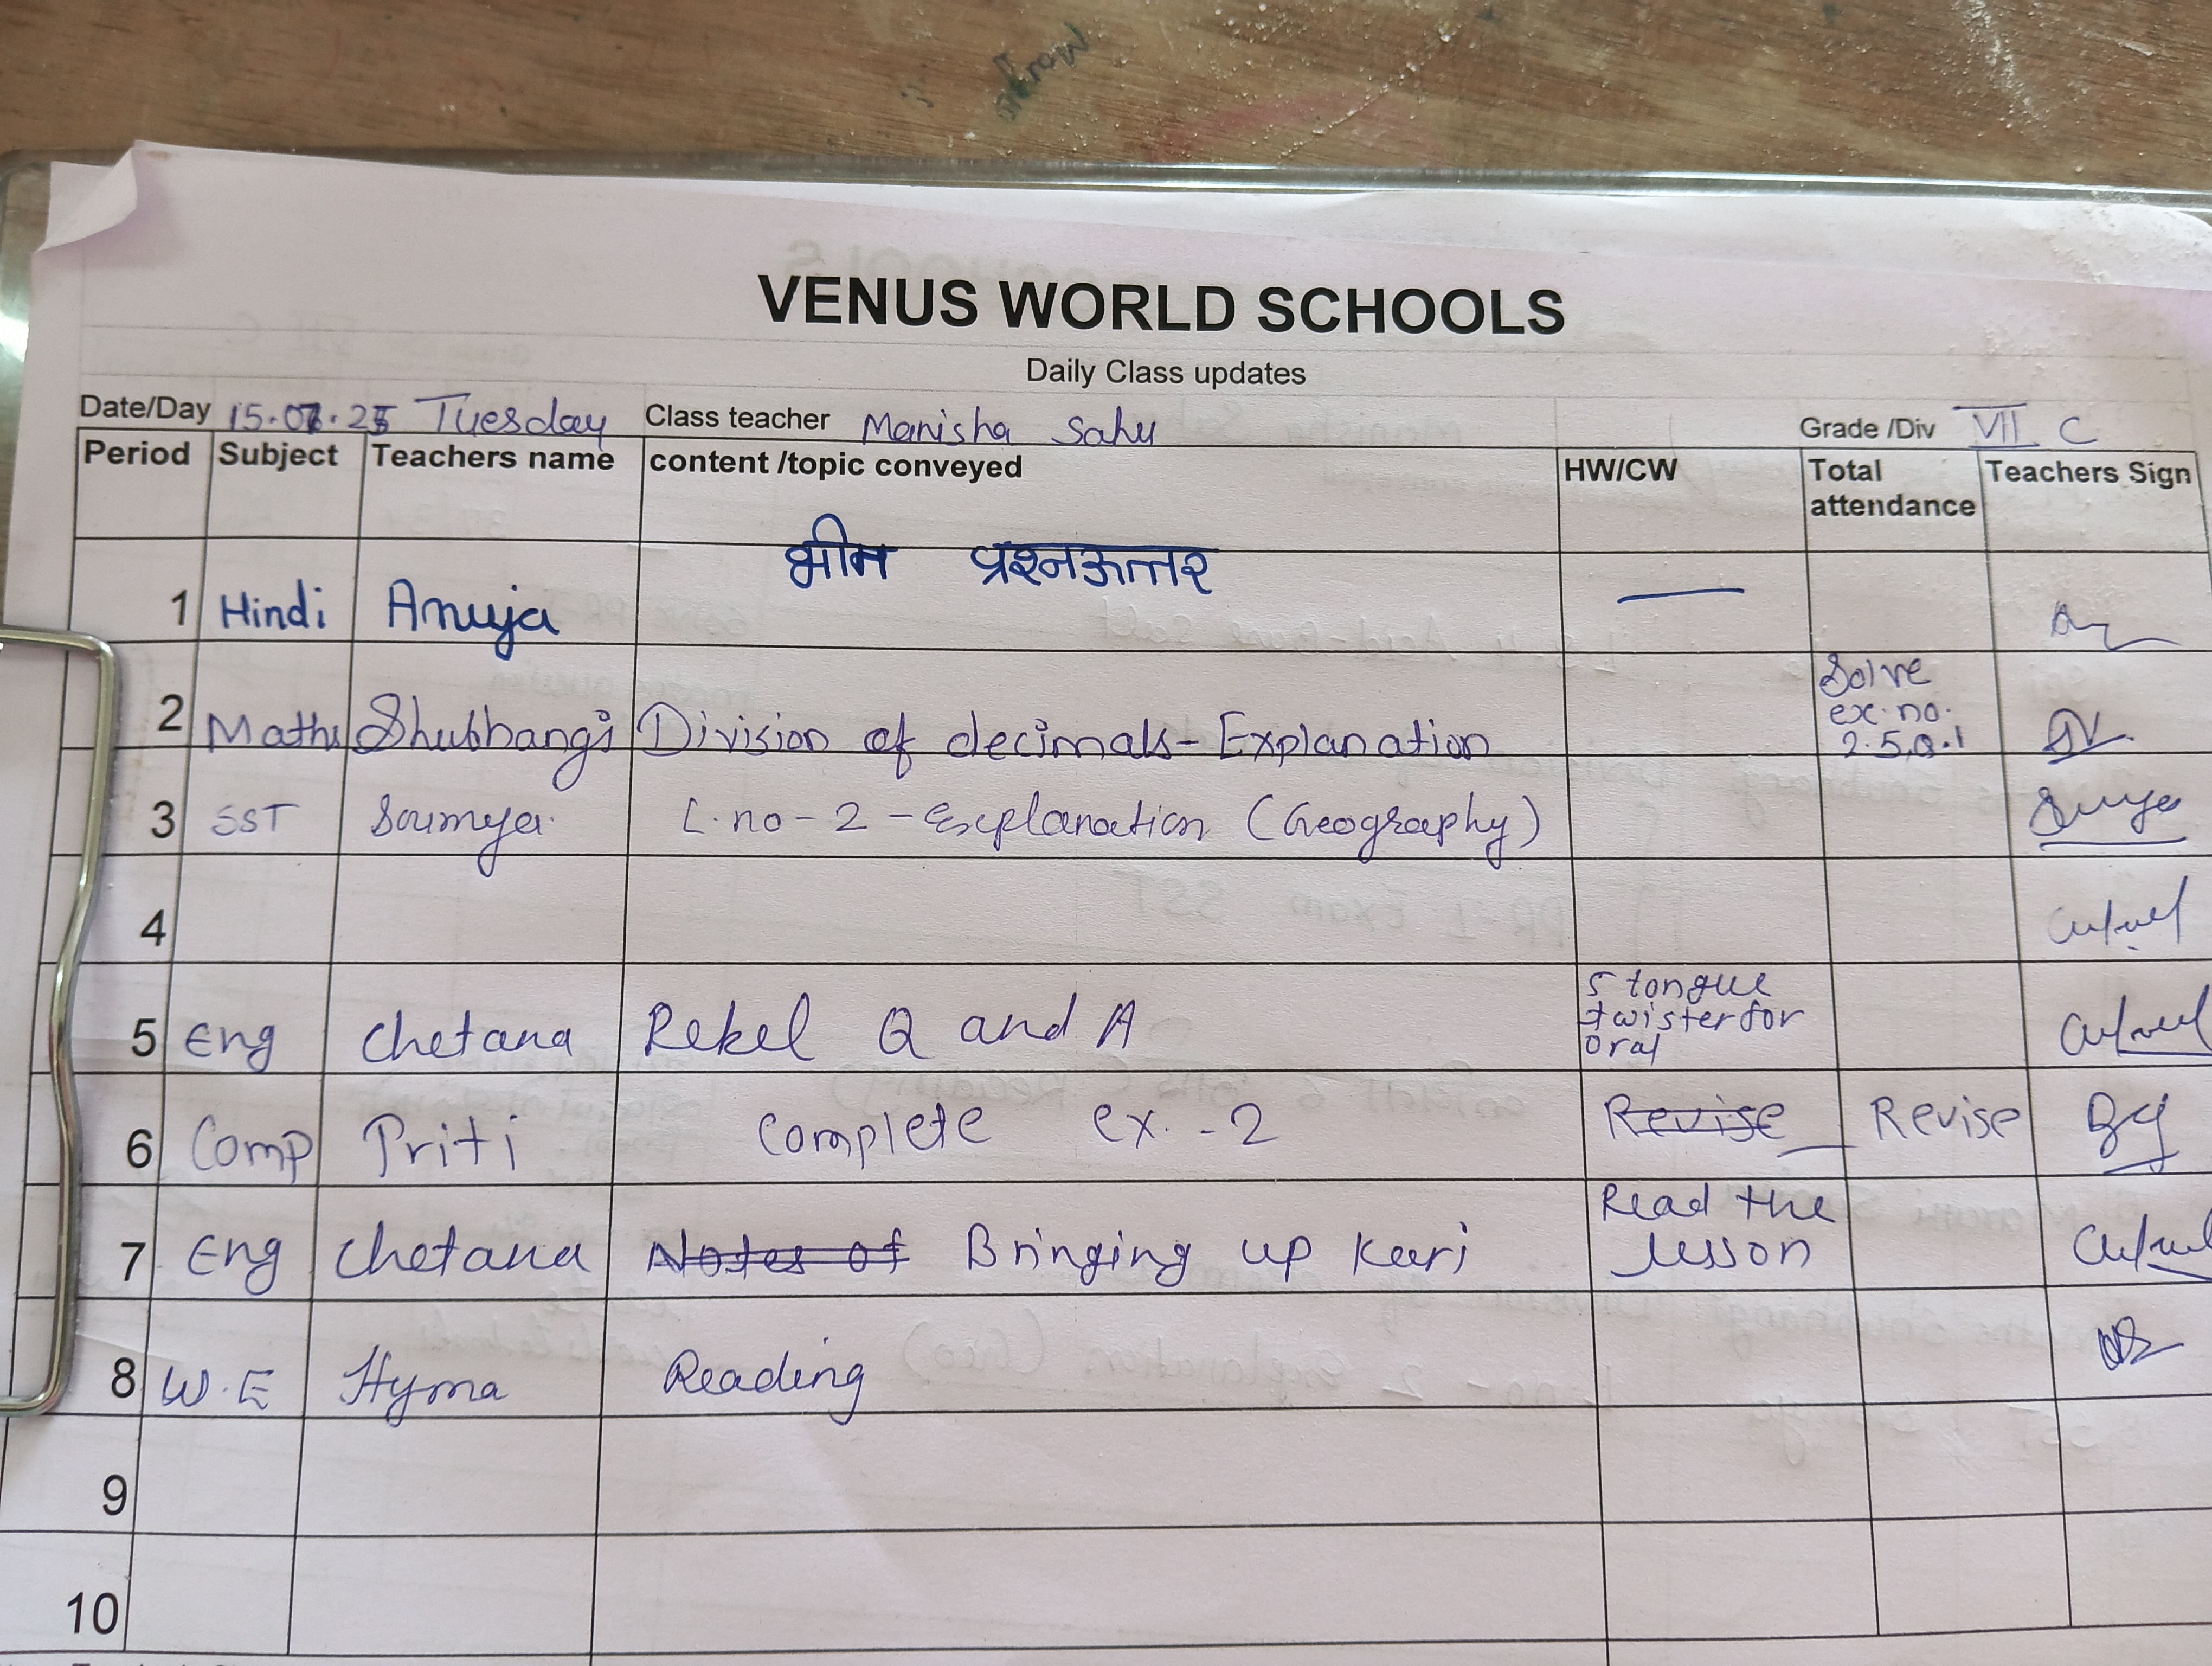 VENUS WORLD SCHOOLS
Daily Class updates
Date/Day 15.07.25 Tuesday Class teacher Manisha Sahu Grade /Div VII C
Period Subject Teachers name content /topic conveyed HW/CW Total attendance Teachers Sign
1 Hindi Anuja भीम प्रश्नउत्तर —
2 Maths Shubhangi Division of decimals - Explanation Solve ex.no. 2.5.Q.1
3 SST Soumya L.no - 2 - Explanation (Geography)
4
5 Eng Chetana Rebel Q and A 5 tongue twister for oral
6 Comp Priti complete ex. - 2 Revise Revise
7 Eng Chetana Notes of Bringing up Kari Read the lesson
8 W.E Hyma Reading
9
10